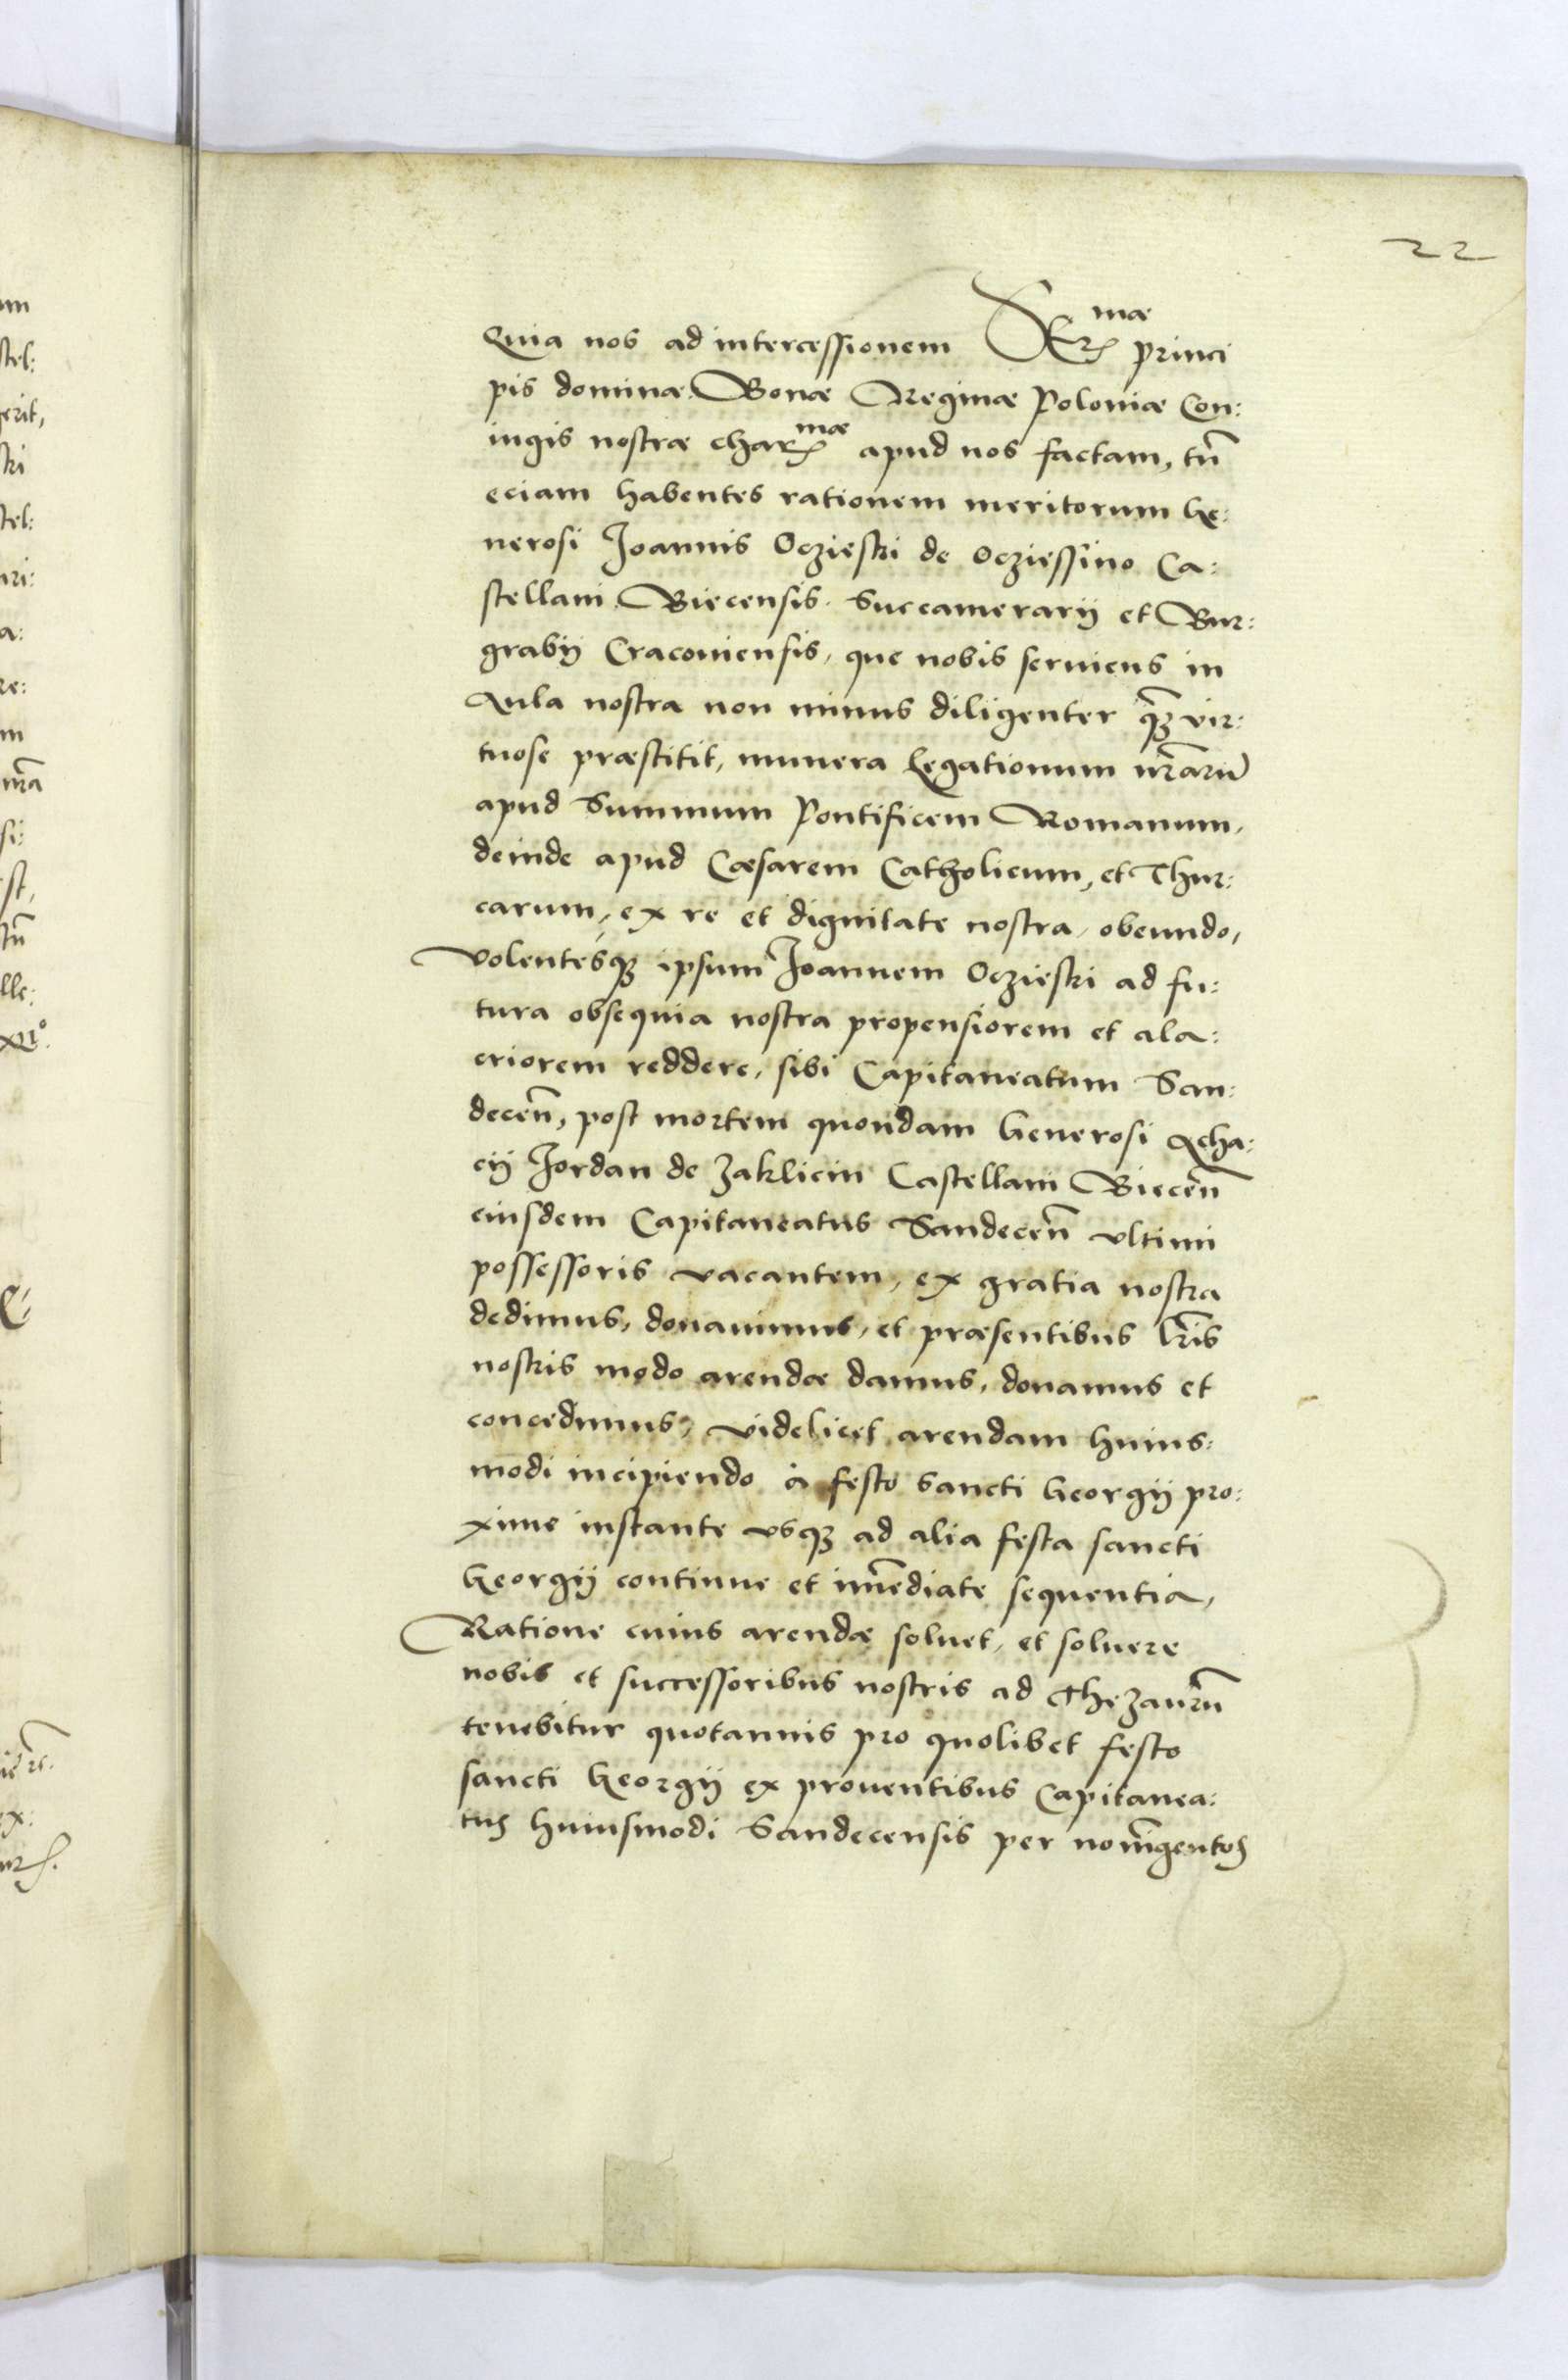 22
Quia nos ad intercessionem Ser^mae princi
pis dominæ Bonæ Reginæ Poloniæ Con:
iugis nostræ char^mae apud nos factam, tũ
eciam habentes rationem meritorum Ge:
nerosi Joannis Oczieski de Ocziessino Ca:
stellani Biecensis. Succamerarij et Bur:
grabij Cracouiensis, que nobis seruiens in
Aula nostra non minus diligenter q̃ꝫ vir:
tuose præstitit, munera Legationum nr̃arũ
apud Summum Pontificem Romanum,
deinde apud Cæsarem Catholicum, et Thur:
carum, ex re et dignitate nostra, obeundo,
Volentésqꝫ ipsum Joannem Oczieski ad fu:
tura obsequia nostra propensiorem et ala:
criorem reddere, sibi Capitaneatum San:
decen̄, post mortem quondam Generosi Acha:
cij Jordan de Zaklicin Castellani Biecen̄
eiusdem Capitaneatus Sandecen̄ vltimi
possessoris vacantem, ex gratia nostra
dedimus, donauimus, et præsentibus lr̃is
nostris modo arendæ damus, donamus et
concedimus, videlicet arendam huius:
modi incipiendo à festo Sancti Georgij pro:
xime instante vsqꝫ ad alia festa sancti
Georgij continue et im̃ediate sequentia,
Ratione cuius arendæ soluet, et soluere
nobis et successoribus nostris ad Thezaurũ
tenebitur quotannis pro quolibet festo
sancti Georgij ex prouentibus Capitanea:
tus huiusmodi Sandecensis per nomĩgentos